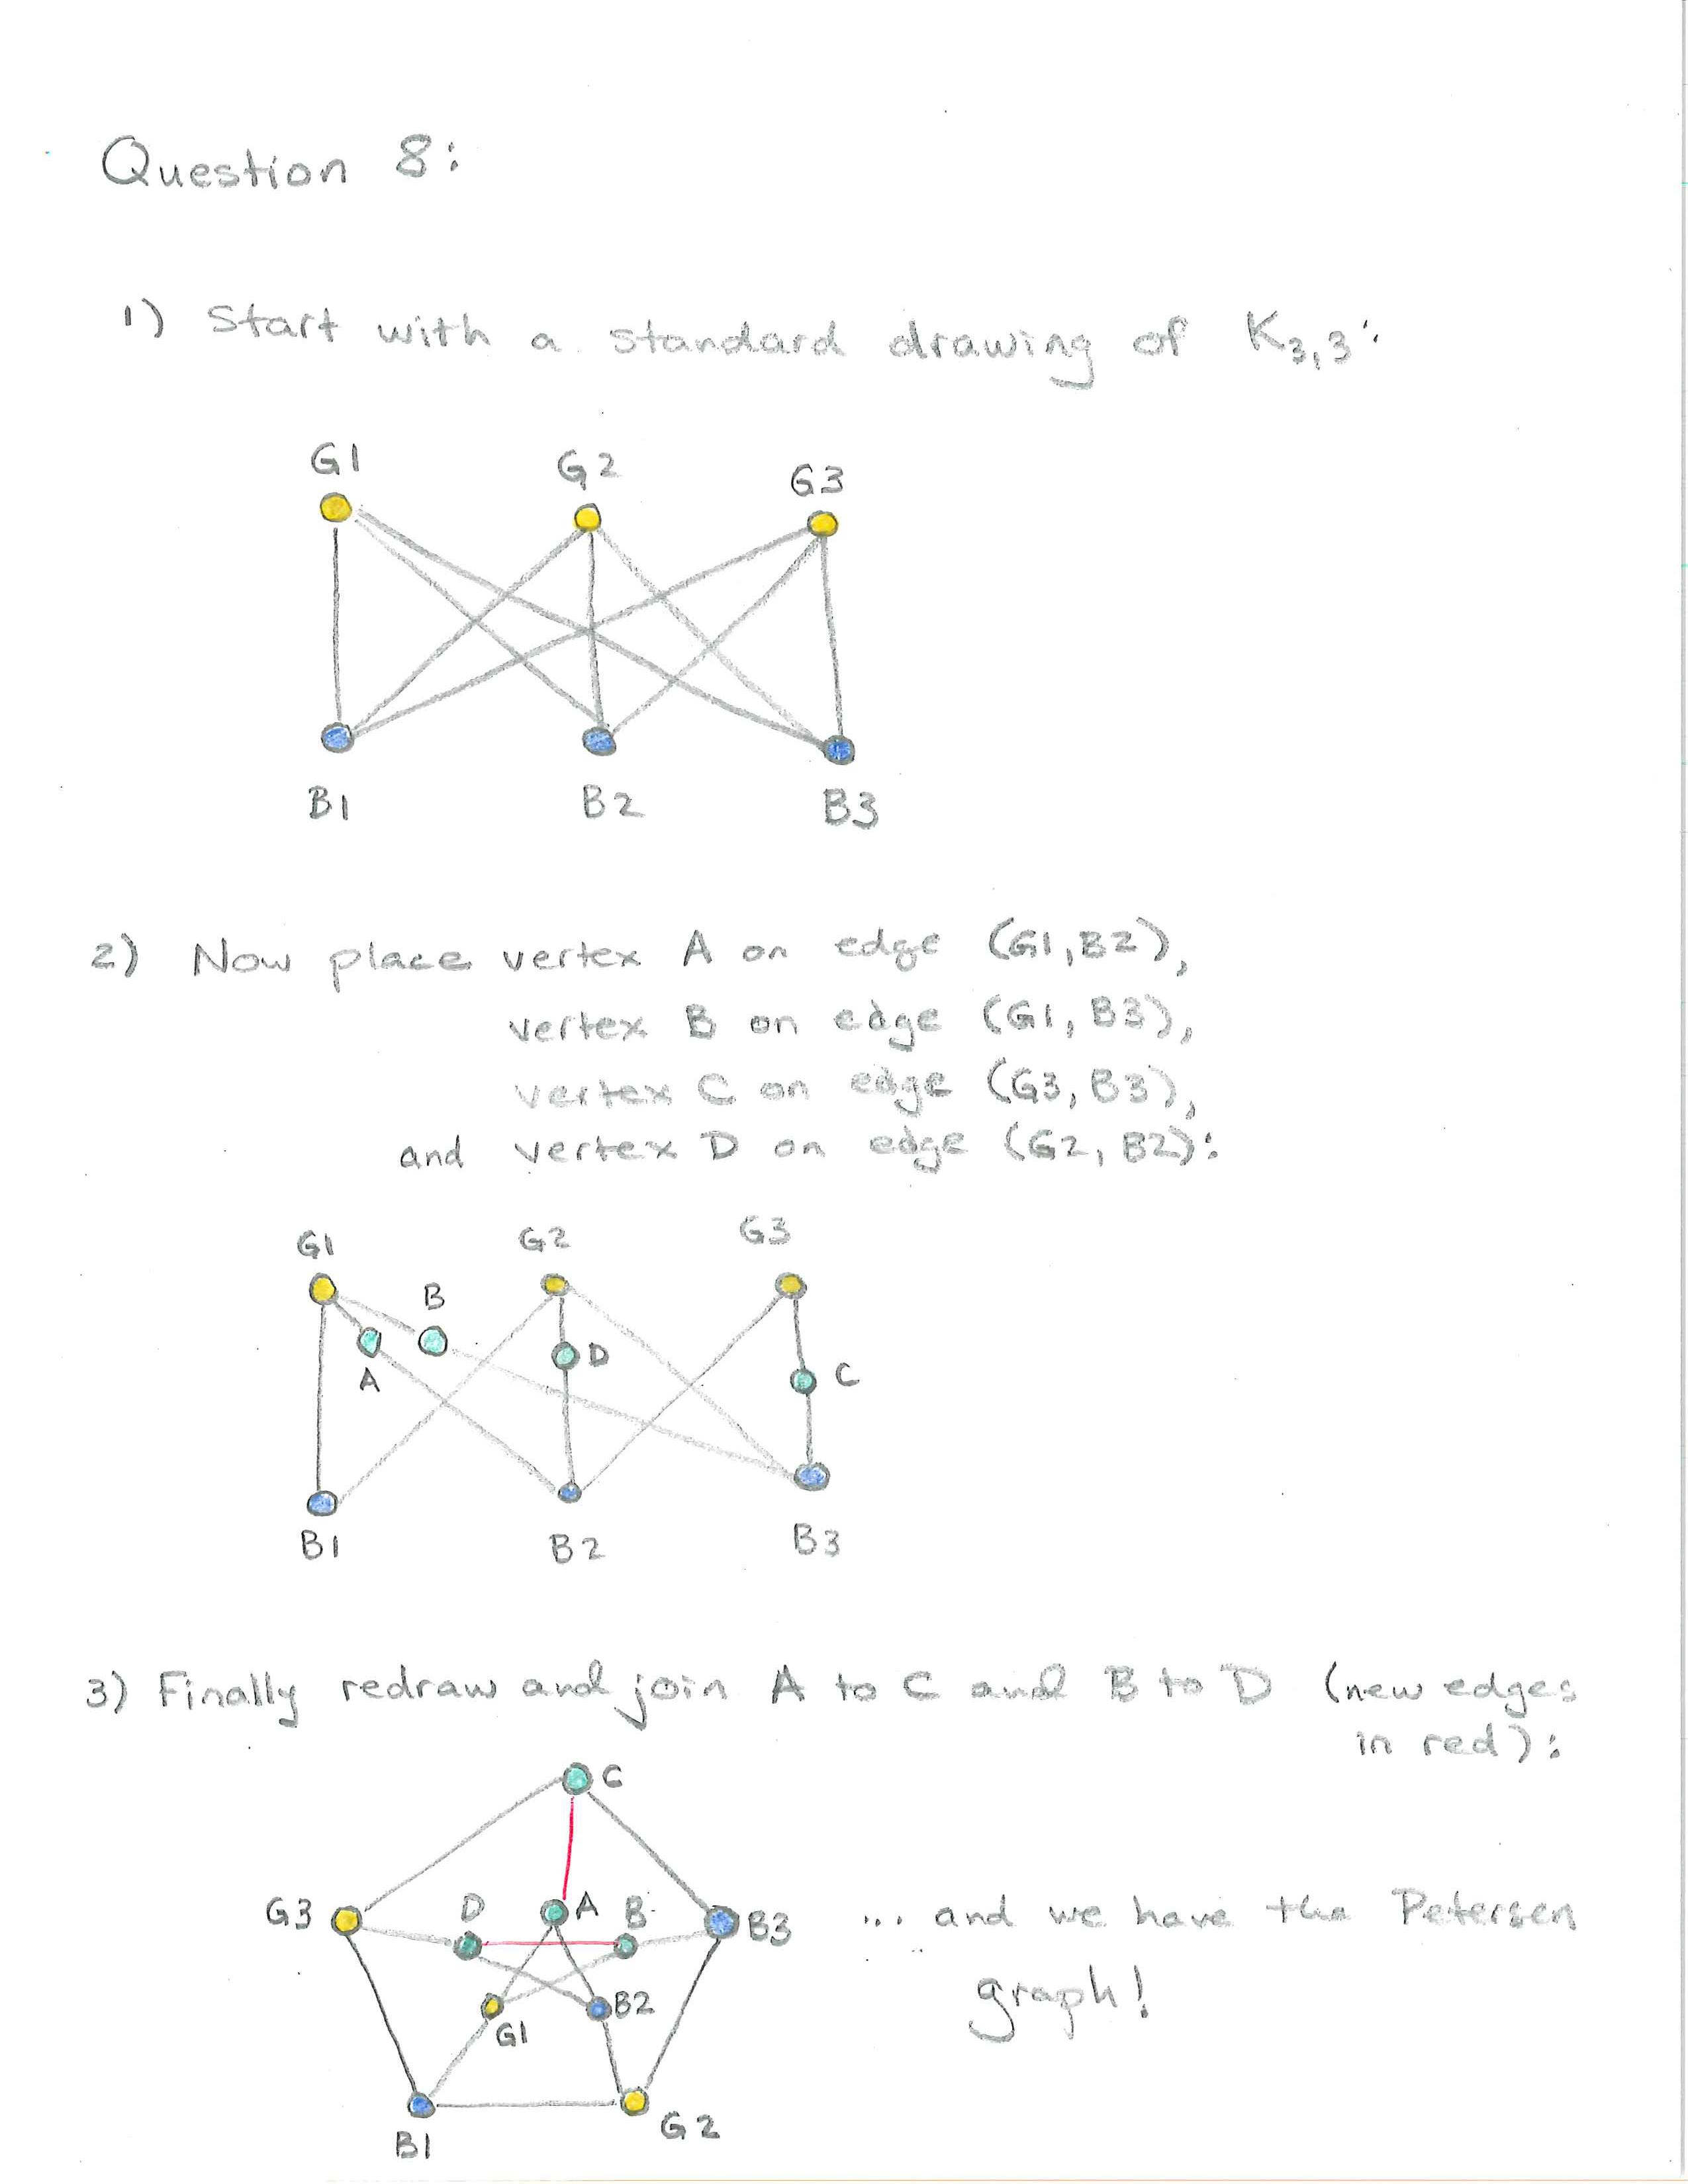 Question 8:
1) Start with a standard drawing of K3,3:
G1 G2 G3
B1 B2 B3
2) Now place vertex A on edge (G1,B2),
vertex B on edge (G1, B3),
vertex C on edge (G3, B3),
and vertex D on edge (G2, B2):
G1 G2 G3
B
D
A C
B1 B2 B3
3) Finally redraw and join A to C and B to D (new edges
in red):
C
G3 D A B B3 ... and we have the Petersen
graph!
B2
G1
G2
B1